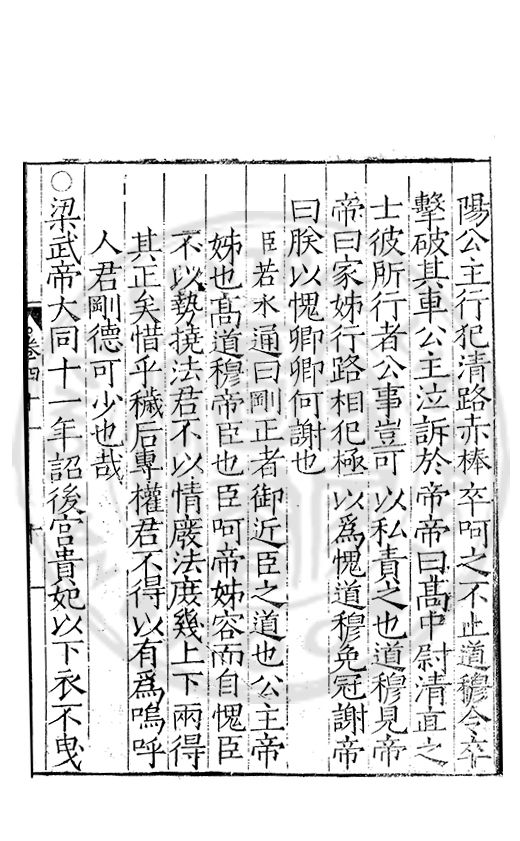 陽公主行犯清路赤棒卒呵之不止道穆令卒
擊破其車公主泣訴於帝帝曰髙中尉清直之
士彼所行者公事豈可以私責之也道穆見帝
帝曰家姊行路相犯極以爲愧道穆免冠謝帝
曰朕以愧卿卿何謝也
臣若水通曰剛正者御近臣之道也公主帝
姊也髙道穆帝臣也臣呵帝姊容而自愧臣
不以勢撓法君不以情廢法庻幾上下兩得
其正矣惜乎穢后專權君不得以有爲嗚呼
人君剛德可少也哉
○梁武帝大同十一年詔後宮貴妃以下衣不曳
卷四十一
十一